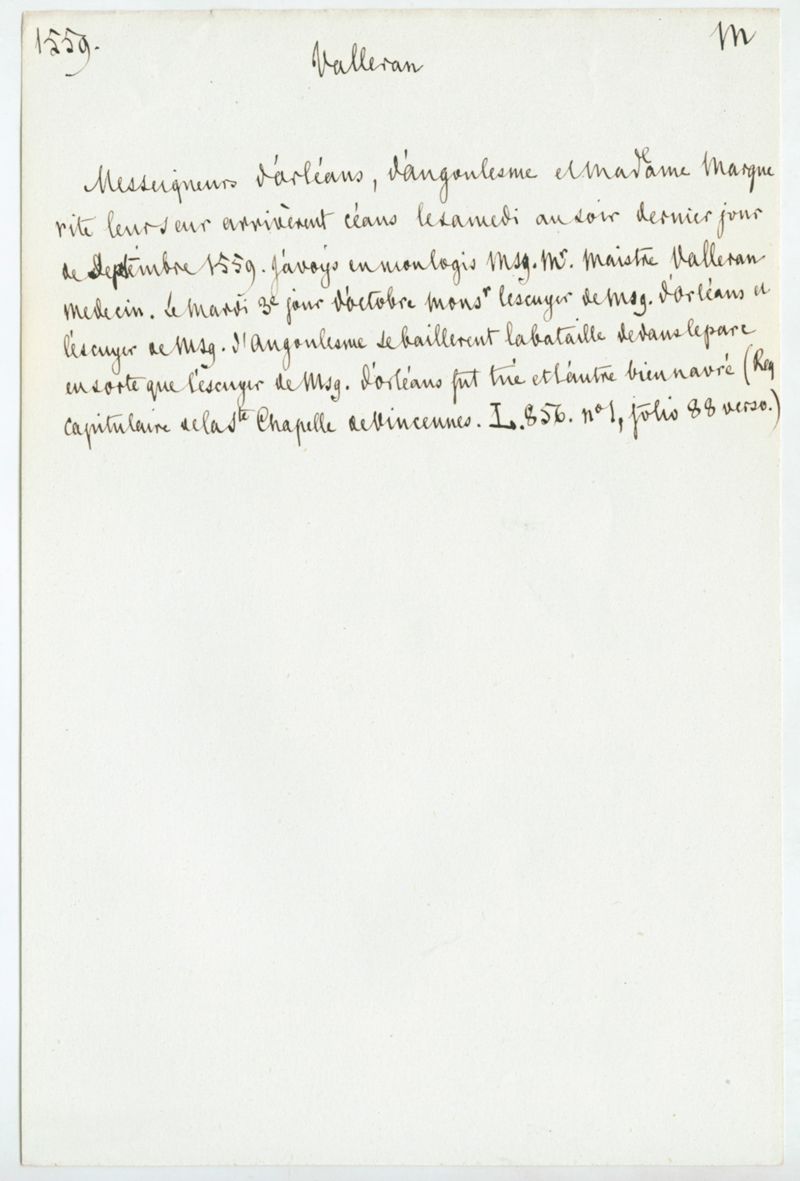 1559.
Valleran
M
Messeigneurs d'orléans, d'angoulesme et Madame Margue
rite leur seur arrivèrent céans le samedi au soir dernier jour
de Septembre 1559. J'avoÿs en mon logis Msg. Mr. Maistre Valleran
medecin. Le Mardi 3e jour d'octobre Monsr l'escuyer de Msg. d'orléans et
l'escuyer de Msg. d'Angoulesme se baillerent la bataille dedans le parc
en sorte que l'escuyer de Msg. d'orléans fut tué et l'autre bien navré (Reg
capitulaire de la Ste Chapelle de Vincennes. L. 856. no 1, folio 88 verso.)